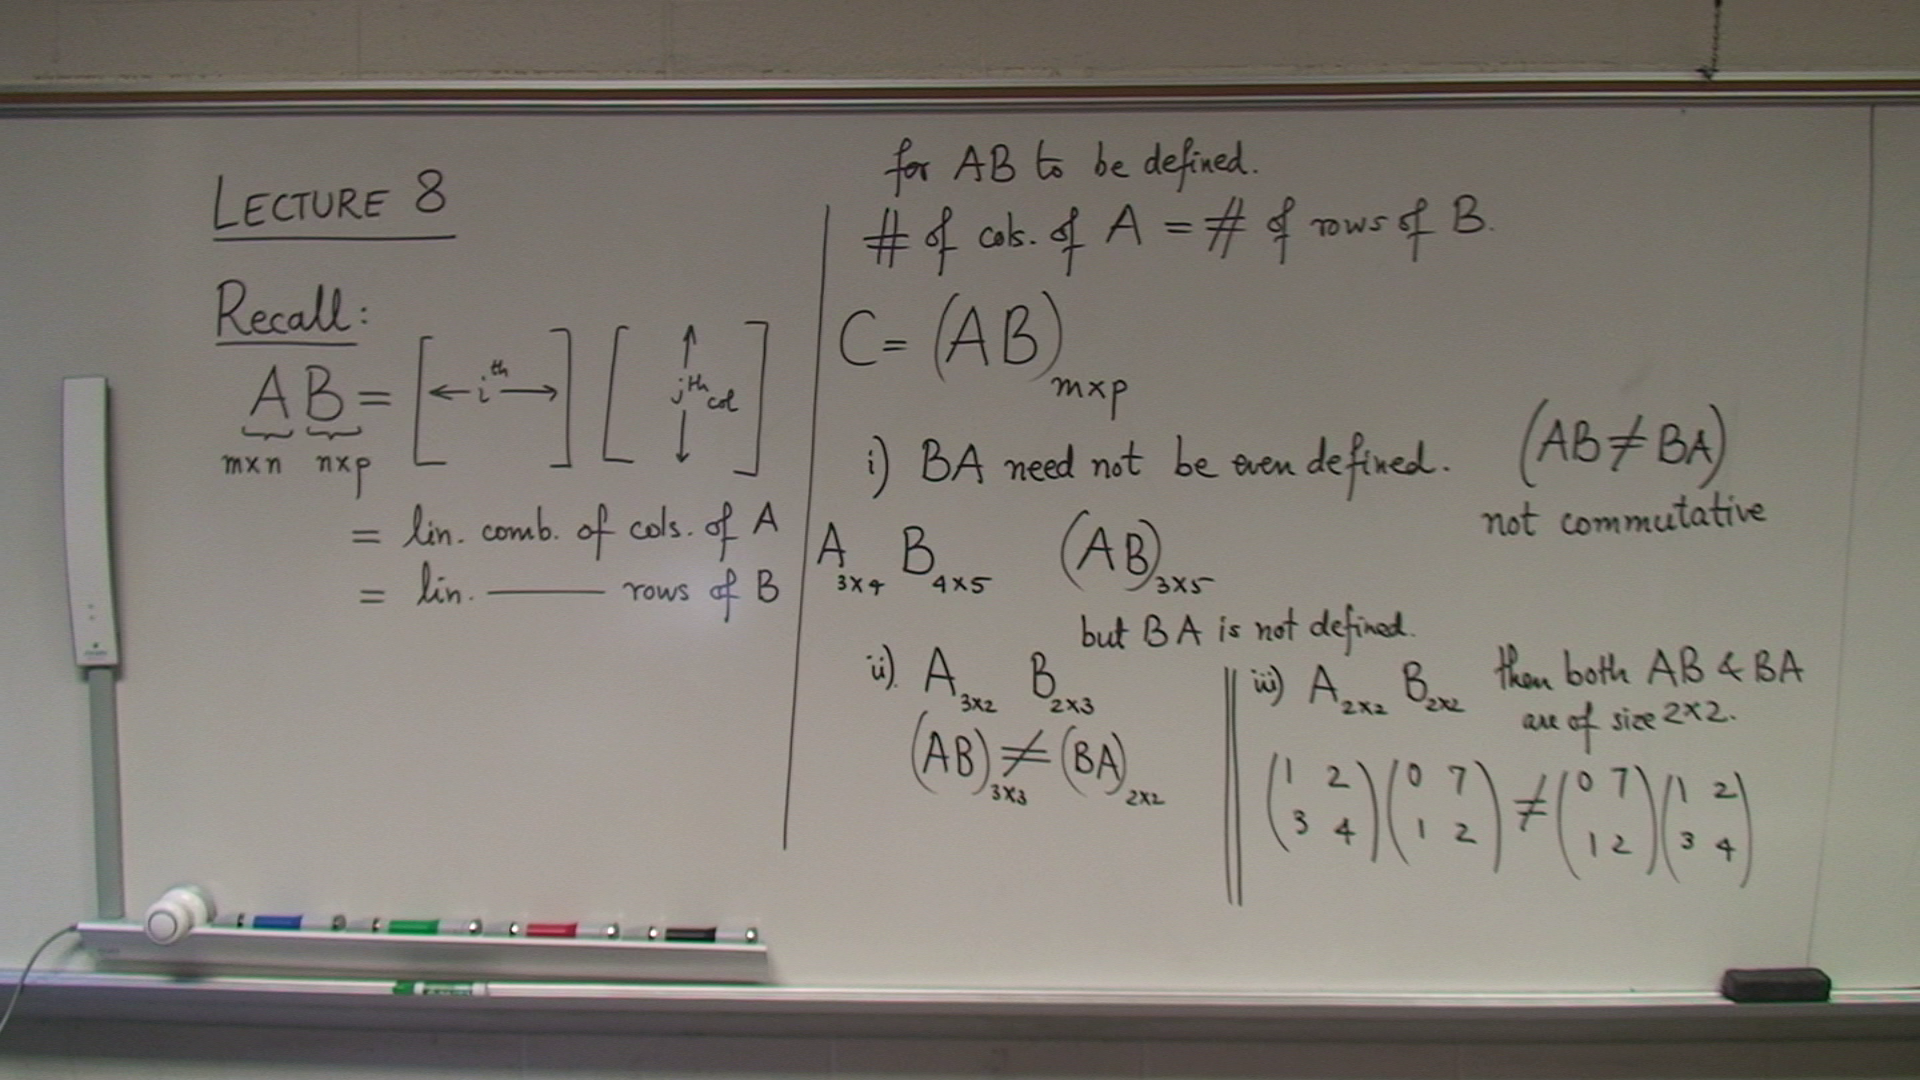 LECTURE 8
Recall:
A B = [ ← i th → ] [ ↑ jth col ↓ ]
m×n n×p
= lin. comb. of cols. of A
= lin. —— rows of B
for AB to be defined.
# of cols. of A = # of rows of B.
C = (AB) m×p
i) BA need not be even defined. (AB ≠ BA)
not commutative
A 3×4 B 4×5 (AB) 3×5
but BA is not defined.
ii). A 3×2 B 2×3
(AB) 3×3 ≠ (BA) 2×2
iii) A 2×2 B 2×2 then both AB & BA
are of size 2×2.
(1 2 (0 7 ≠ (0 7 (1 2
3 4) 1 2) 1 2) 3 4)